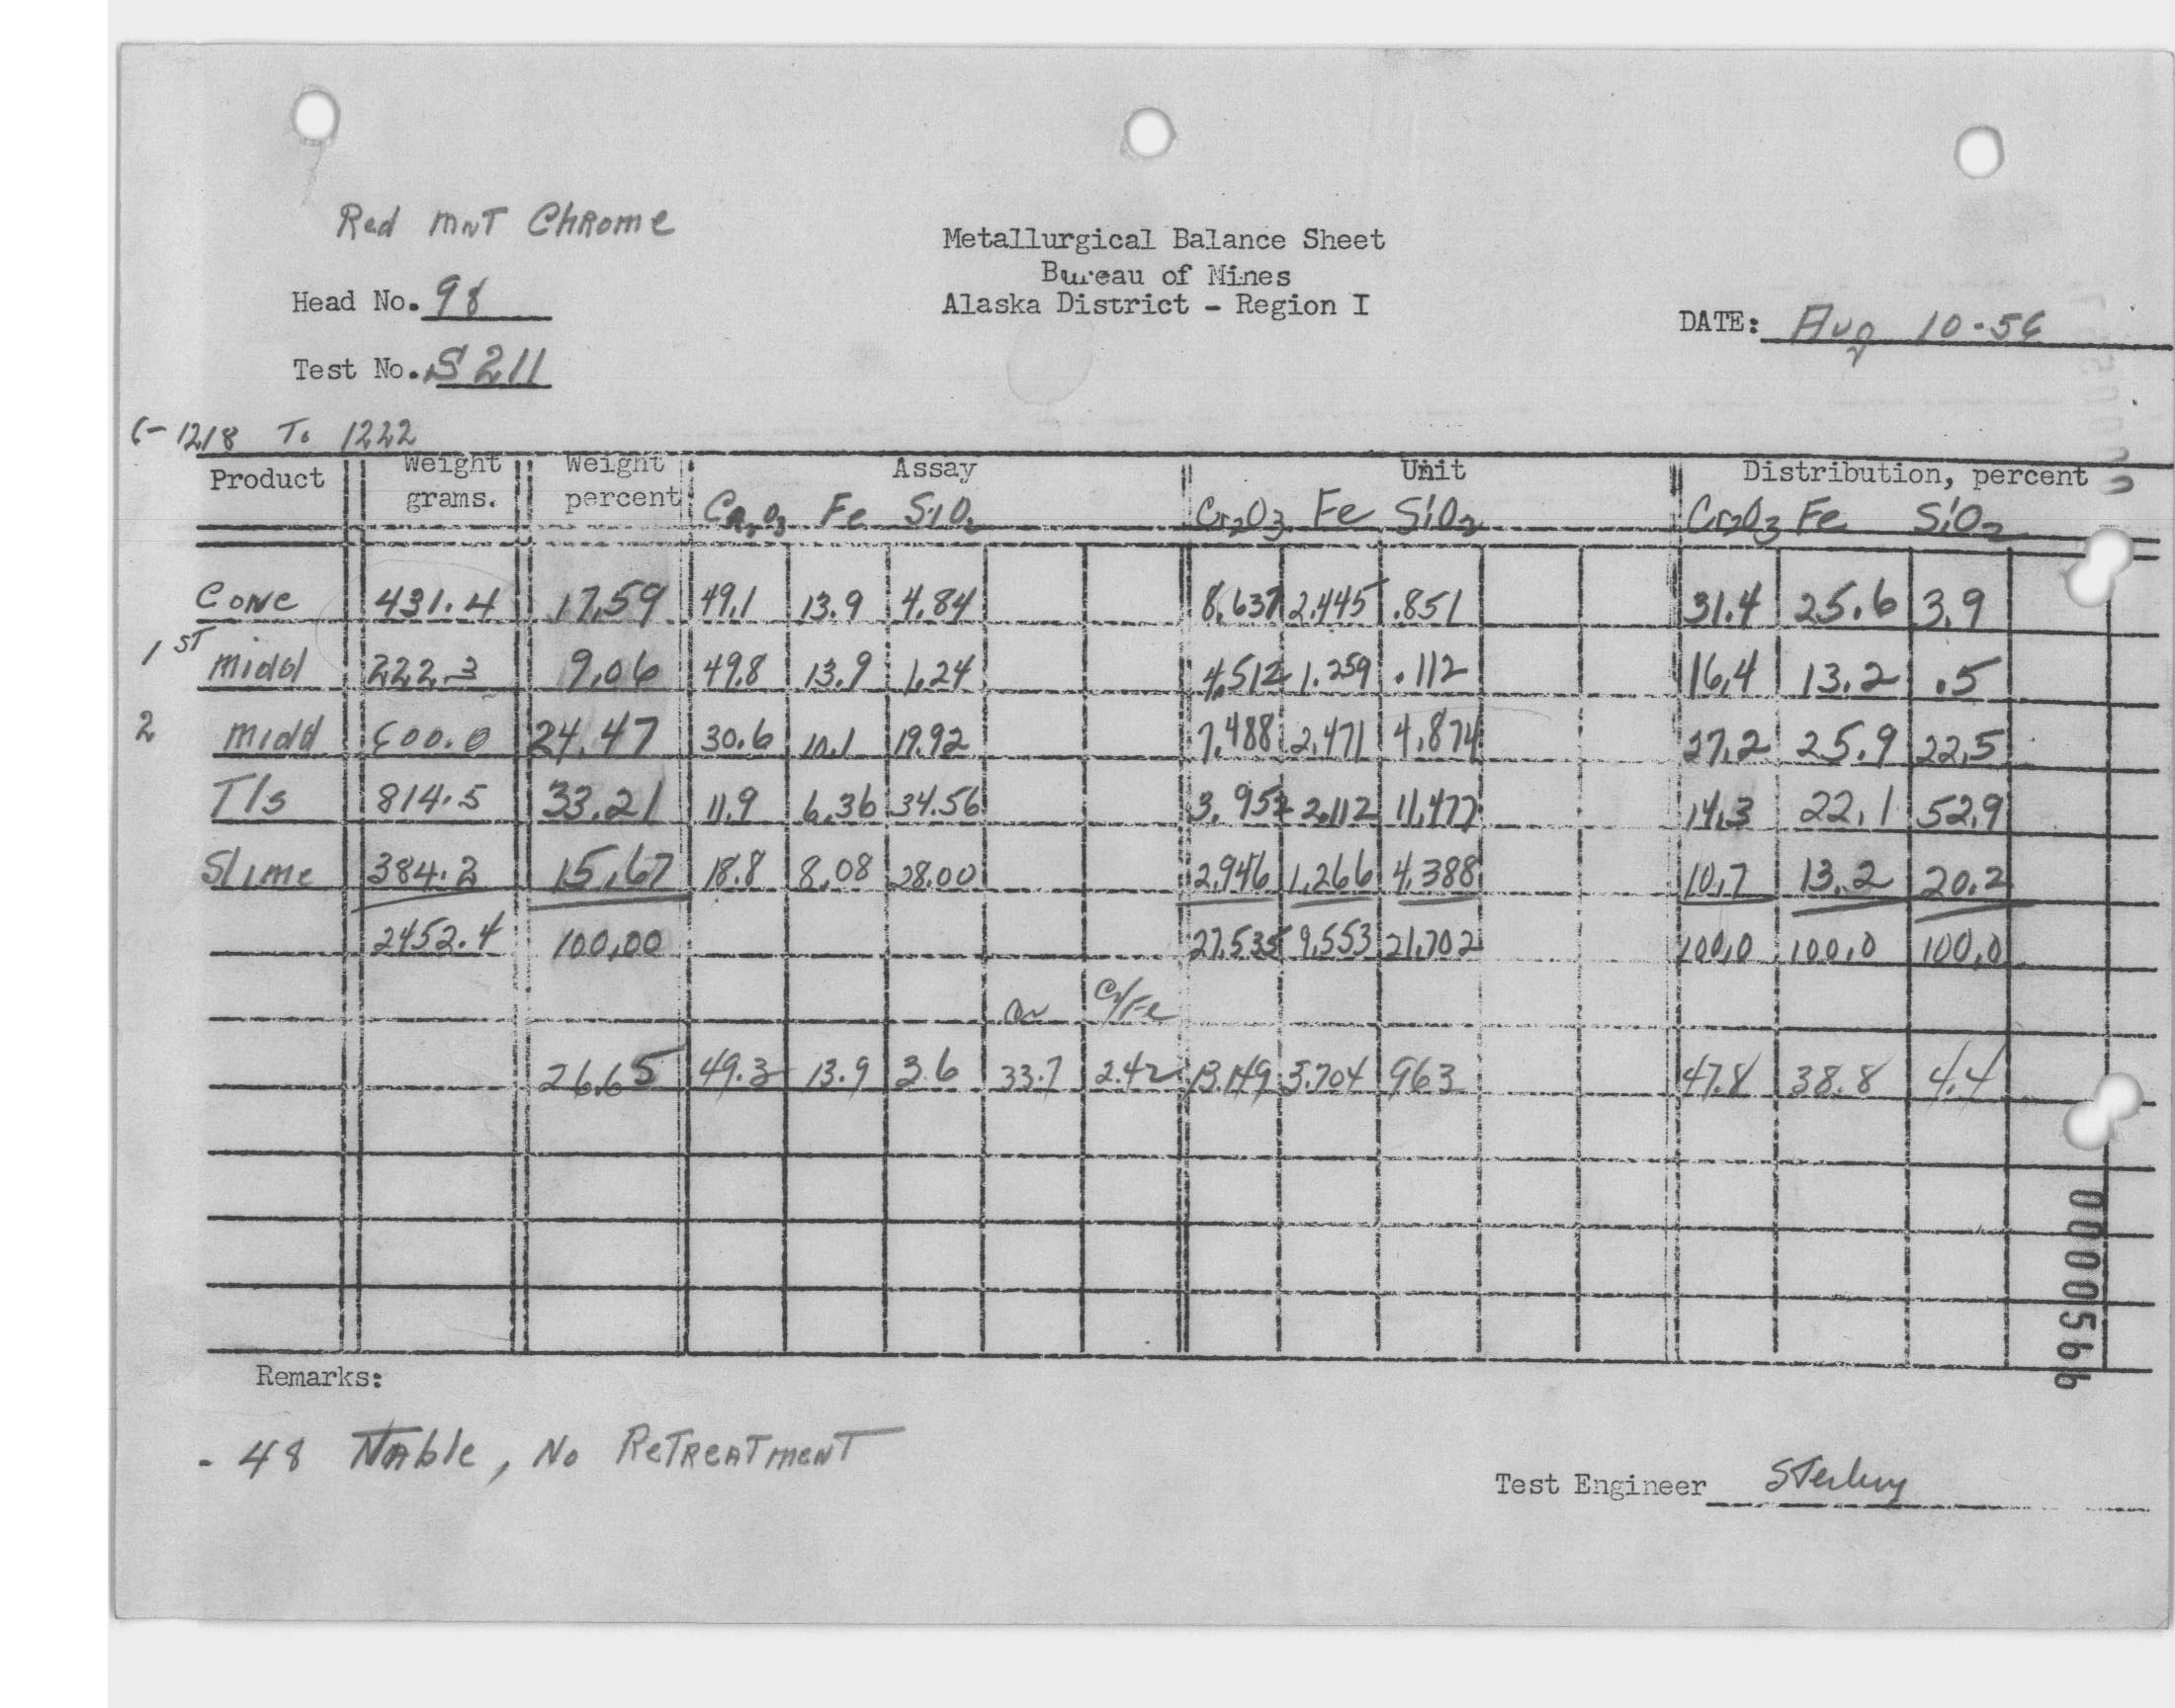 Red MNT Chrome
Metallurgical Balance Sheet
Bureau of Mines
Alaska District - Region I
Head No. 98
DATE: Aug 10-56
Test No. S211
C-1218 To 1222
Product Weight grams. Weight percent Assay Unit Distribution, percent
Cr2O3 Fe SiO2 Cr2O3 Fe SiO2 Cr2O3 Fe SiO2
Conc 431.4 17.59 49.1 13.9 4.84 8.637 2.445 .851 31.4 25.6 3.9
1ST Midd 222.3 9.06 49.8 13.9 1.24 4.512 1.259 .112 16.4 13.2 .5
2 Midd 600.0 24.47 30.6 10.1 19.92 7.488 2.471 4.874 27.2 25.9 22.5
Tls 814.5 33.21 11.9 6.36 34.56 3.952 2.112 11.477 14.3 22.1 52.9
Slime 384.2 15.67 18.8 8.08 28.00 2.946 1.266 4.388 10.7 13.2 20.2
2452.4 100.00 27.535 9.553 21.702 100.0 100.0 100.0
Cr Cr/Fe
26.65 49.3 13.9 3.6 33.7 2.42 13.149 3.704 963 47.8 38.8 4.4
Remarks:
- 48 Table, No ReTreatment
Test Engineer Sterling
0000566